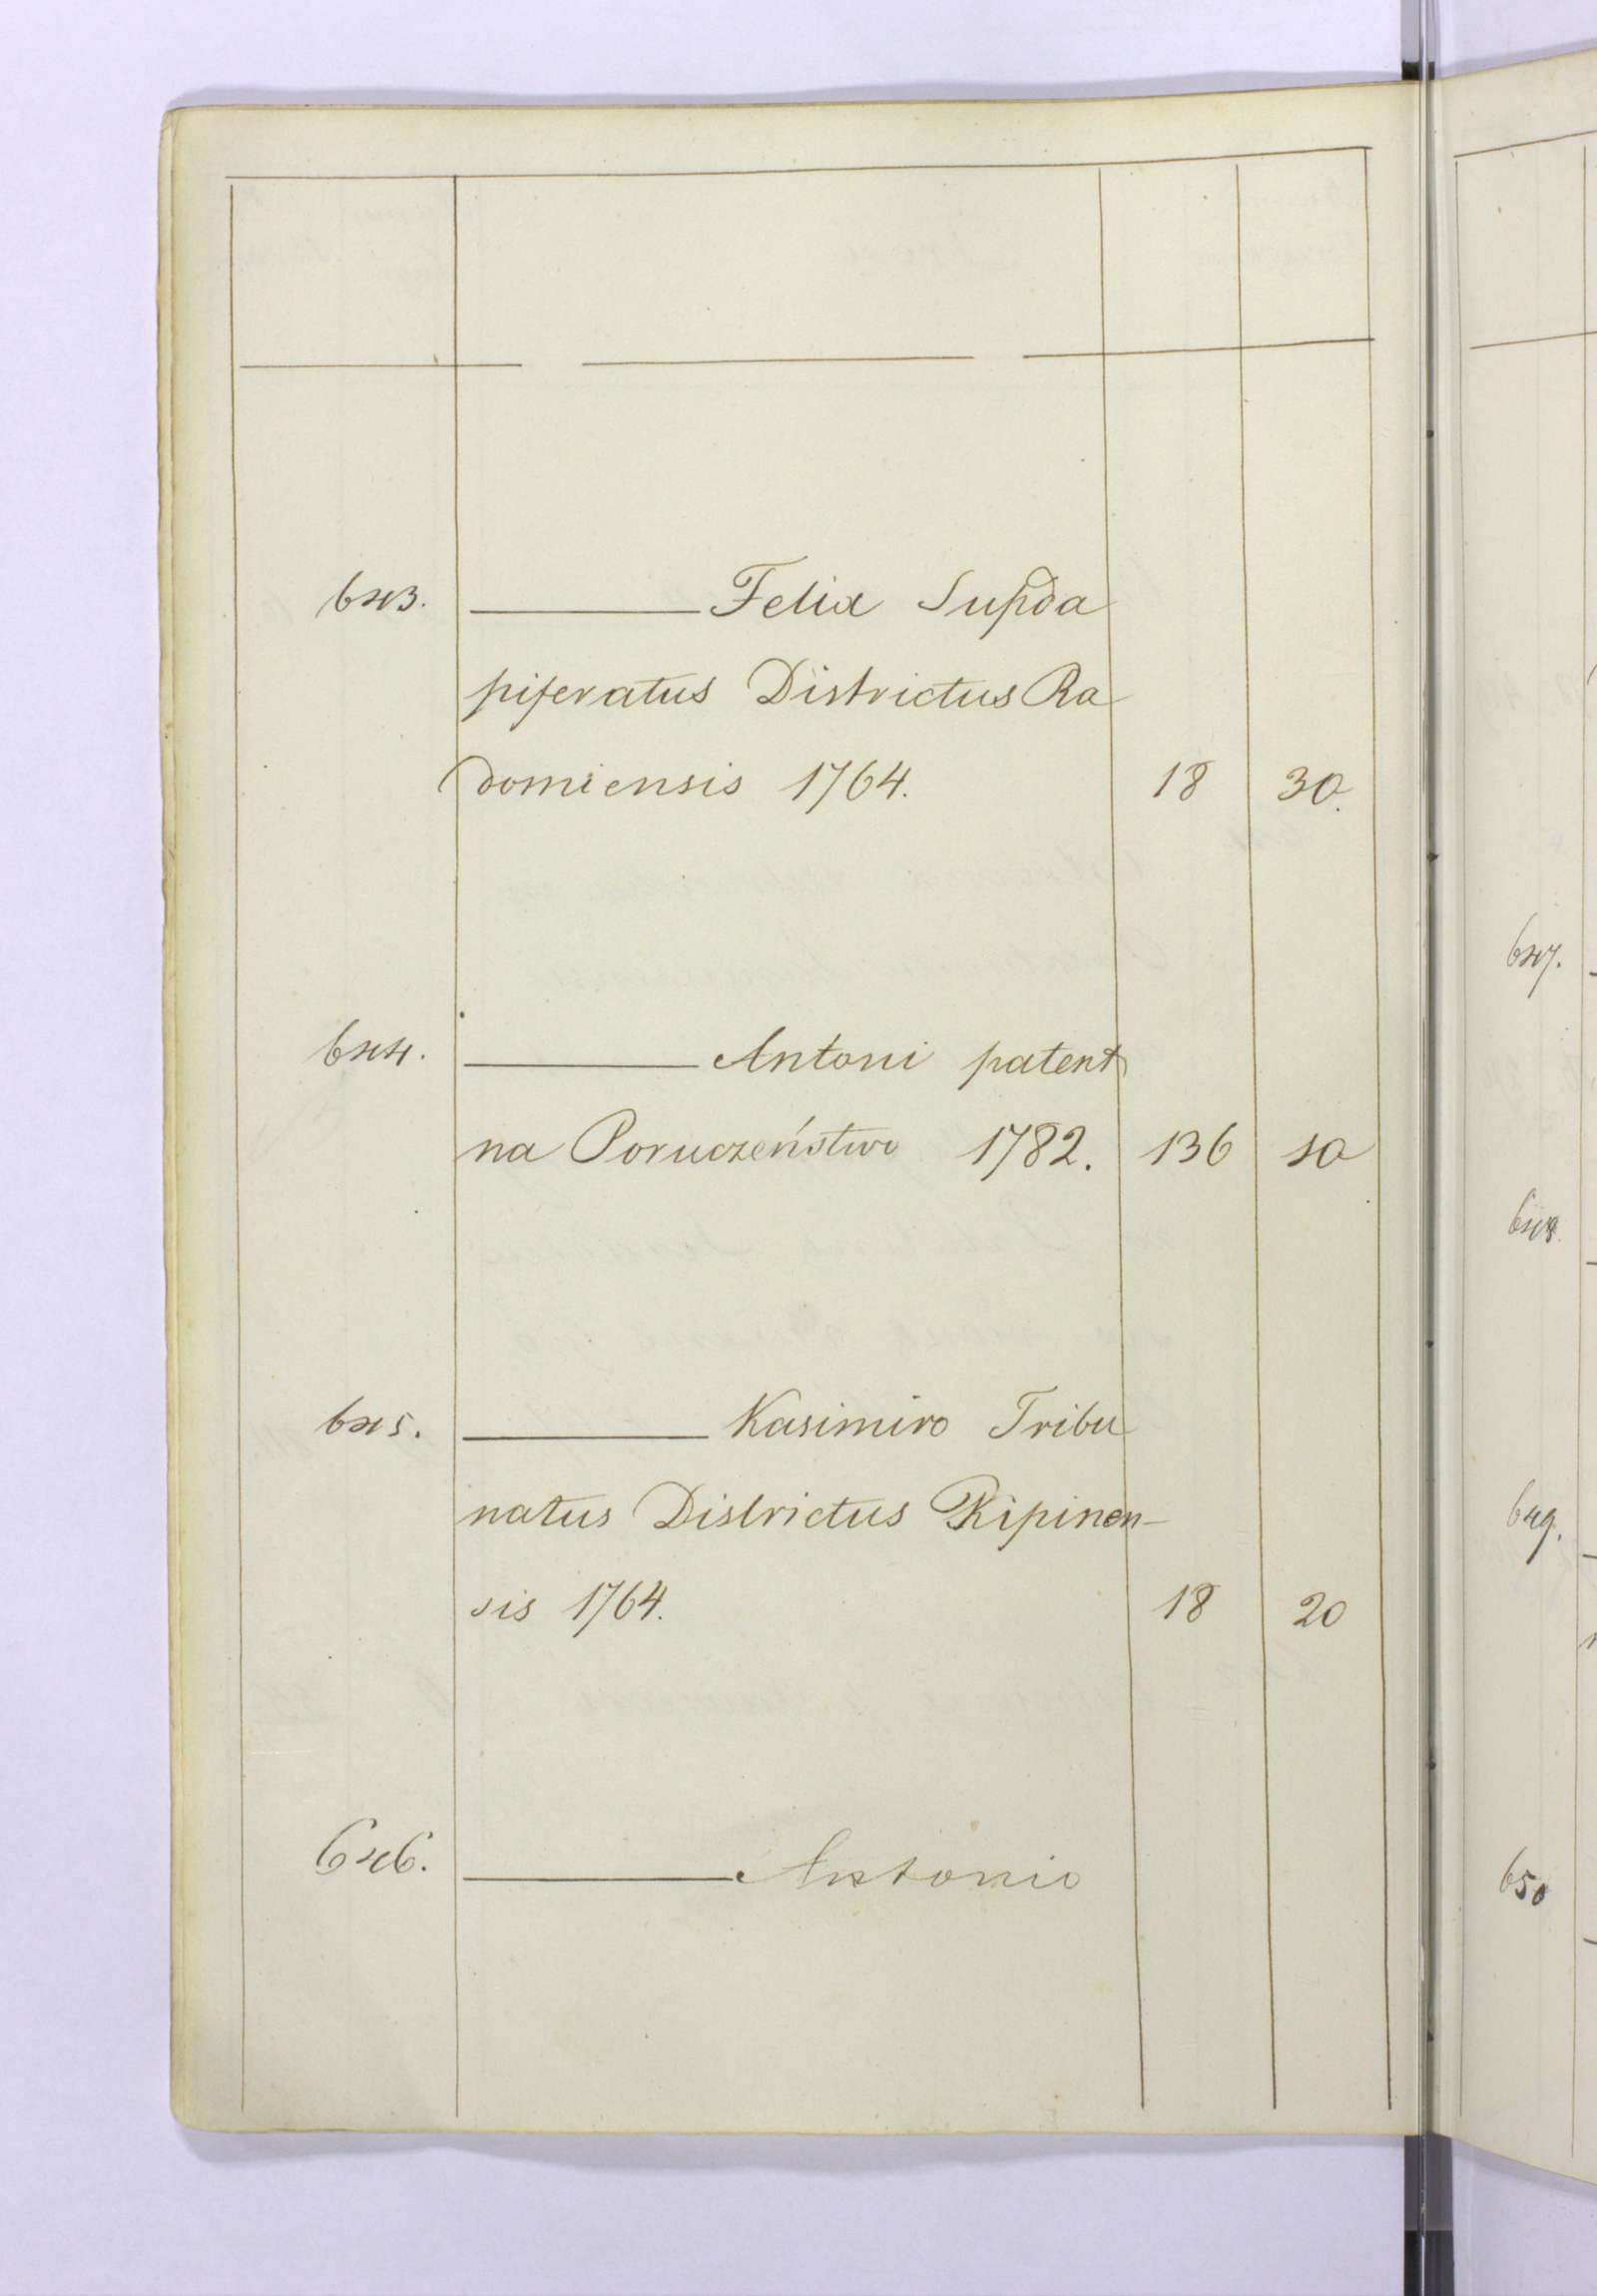 643. ——— Felix Supda
piferatus Districtus Ra
domiensis 1764. 18 30.
644. ——— Antoni patent
na Poruczeństwo 1782. 136 10
645. ——— Kasimiro Tribu
natus Districtus Ripinen-
sis 1764. 18 20
646. ——— Antonio
647.
648.
649.
650